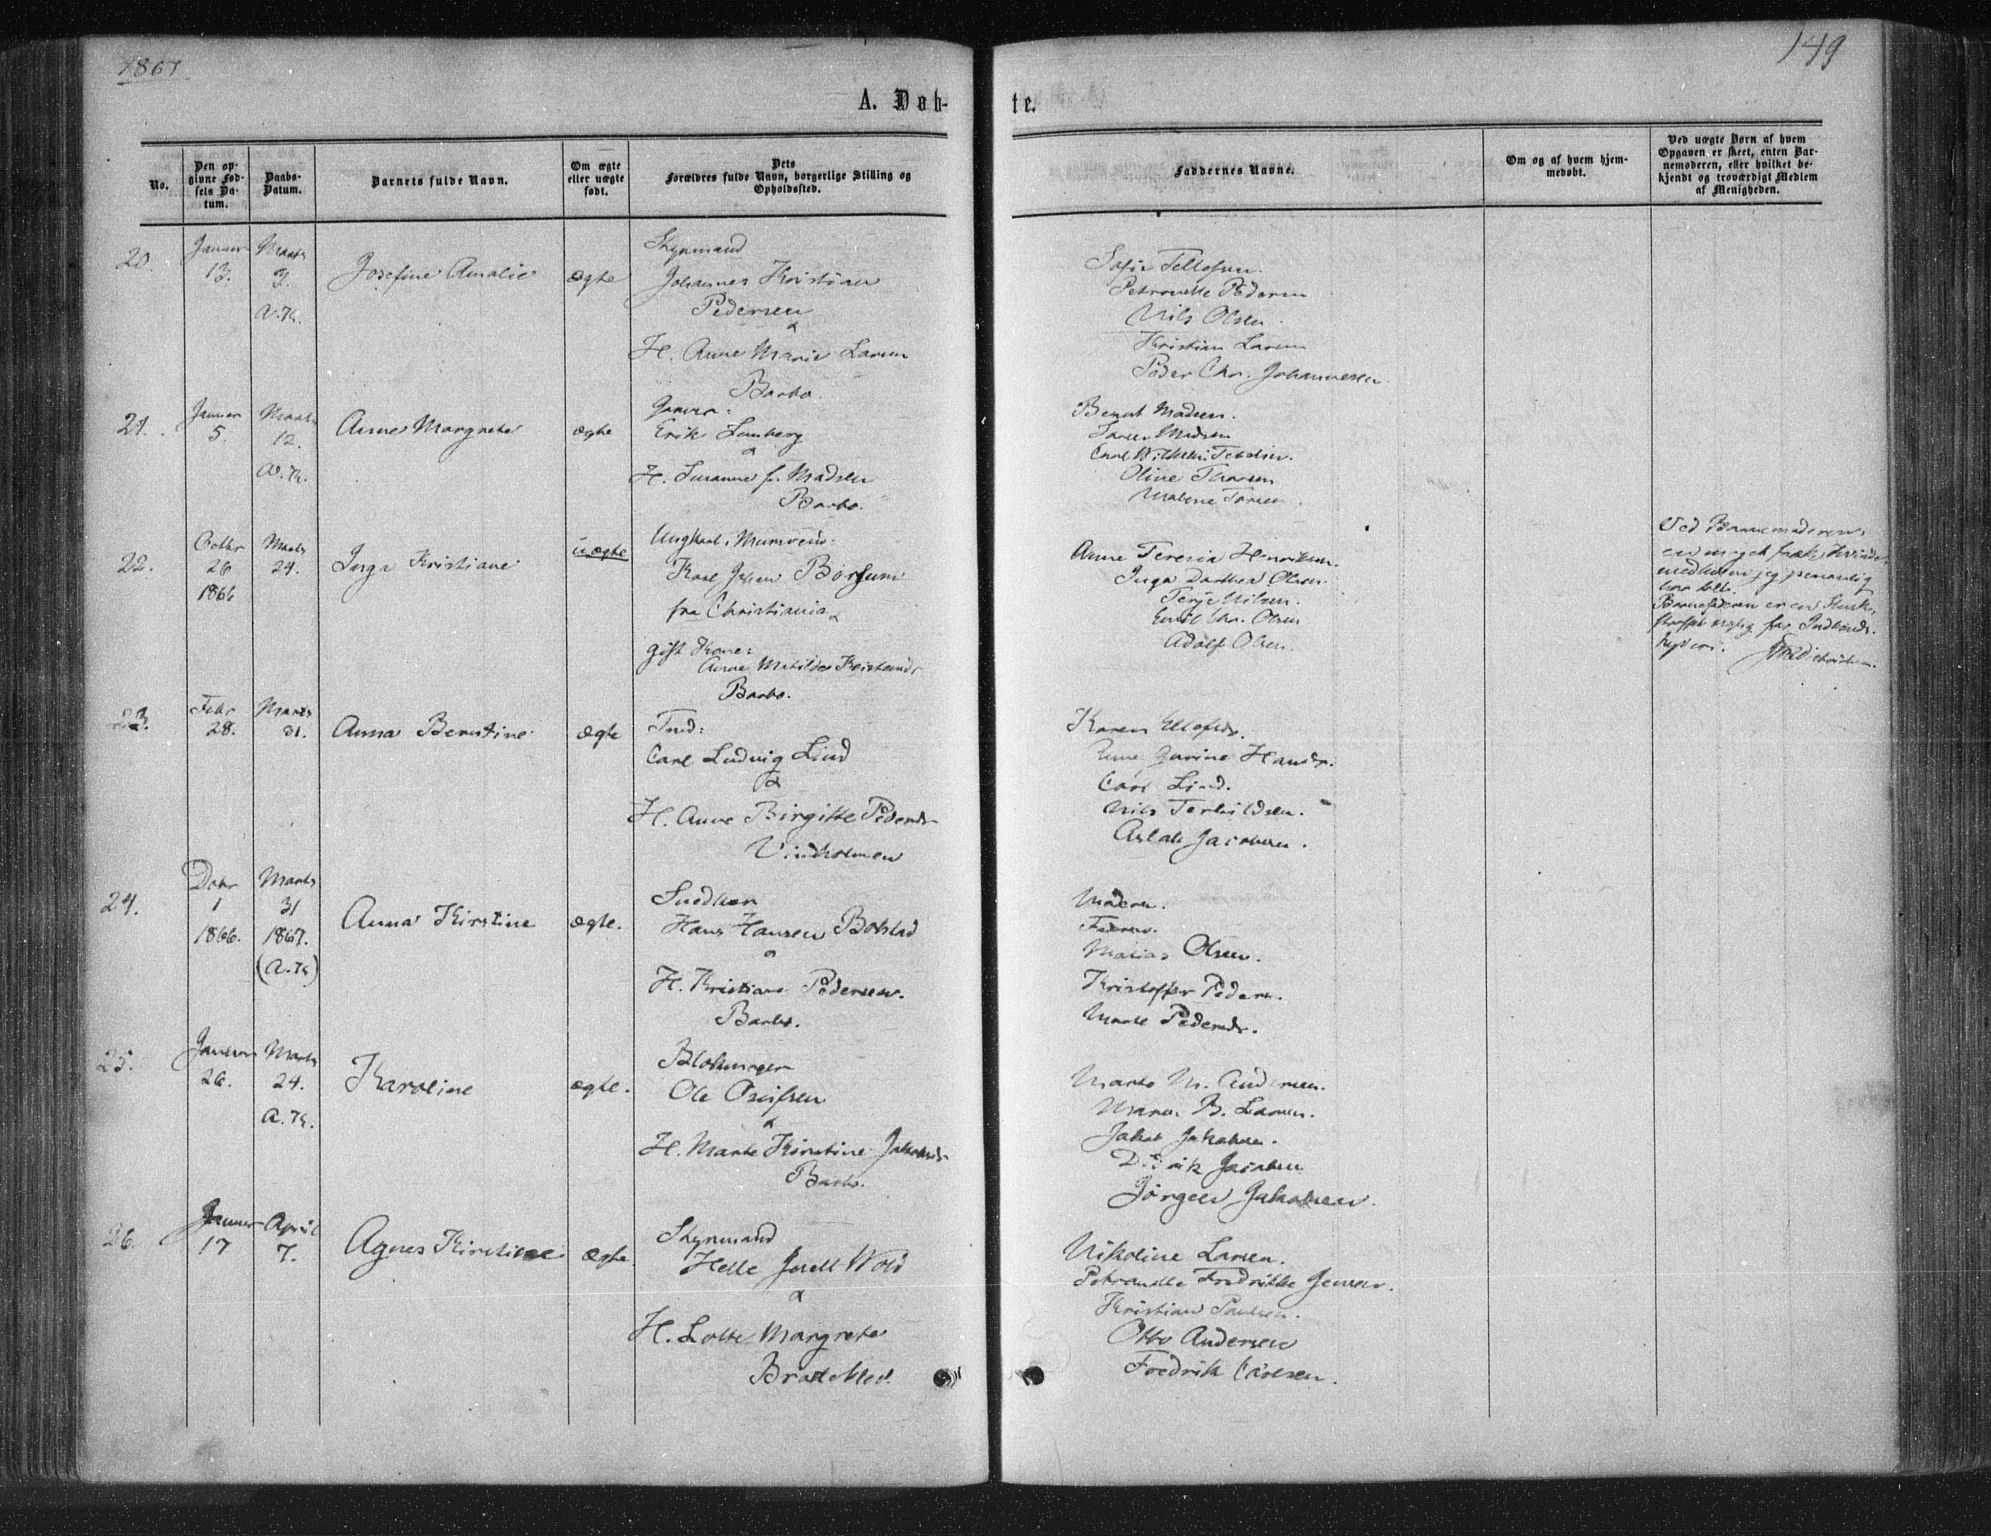 1867
149
A. Døb-
te.
No.
Den op-
givne Fød-
sels Da-
tum.
Daabs-
Datum.
Barnets fulde Navn.
Om ægte
eller uægte
født.
Dets
Forældres fulde Navn, borgerlige Stilling og
Opholdssted.
Faddernes Navne.
Om og af hvem hjem-
medøbt.
Ved uægte Børn af hvem
Opgaven er skeet, enten Bar-
nemoderen, eller hvilket be-
kjendt og troværdigt Medlem
af Menigheden.
20.
Januar
13.
Marts
3.
A.K.
Josefine Amalie
ægte
Styrmand
Johannes Kristian
Pedersen
&
H. Anne Marie Larsen
Barbo.
Sofie Tellefsen.
Petronelle Pedersen
Nils Olsen.
Kristian Larsen
Peder Chr. Johannesen.
21.
Januar
5.
Marts
12.
A.K.
Anne Margrete
ægte
Erik
&
H. Susanne f. Madsen
Barbo.
Bernt Madsen.
Madsen
Carl Wilhelm
Oline
Malene
22.
Octbr
26
1866
Marts
24.
Inga Kristiane
uægte
Ungkarl, Murersvend:
Karl Johan Børsum
fra Christiania &
gift Kone:
Anne Matilde
Barbo.
Anne Teresia Henriksen.
Inga Dorthea Olsen.
Terje Nilsen.
Emil Chr. Olsen
Adolf Olsen.
Ved Barnemoderen,
en meget fræk Kvinde
med hvem jeg personlig
Barnefaderen er en
for Indbruds-
tyveri.
23.
Febr
28.
Marts
31.
Anna Berntine
ægte
Tmd:
Carl Ludvig Lind
&
H. Anne Birgitte Pedersdr
Vindholmen
Karen Ellefsdr.
Anne Gurine Hansdr.
Carl Lind.
Nils Terkildsen.
Aslak Jacobsen.
24.
Decbr
1
1866.
Marts
31
1867.
(A.K)
Anna Kirstine
ægte.
Snedker
Hans Hansen Bokstad
&
H. Kristiane Pedersen.
Barbo.
Moderen.
Faderen.
Matias Olsen.
Kristoffer Pedersen.
Marte Pedersdr.
25.
Januar
26.
Marts
24.
A.K.
Karoline
ægte.
Blokmager
Ole Osufsen
&
H. Marte Kirstine Jakobsdr
Barbo.
Marte M. Andersen.
Maren B. Larsen.
Jakob Jakobsen.
Didrik Jacobsen
Jørgen Jakobsen.
26.
Januar
17
April
7.
Agnes Kirstine
ægte.
Styrmand
Helle Juell Wold
&
H. Lotte Margrete
Nikoline Larsen.
Petronelle Fredrikke Jensen.
Kristian Paulsen.
Otto Andersen
Fredrik Carlsen.